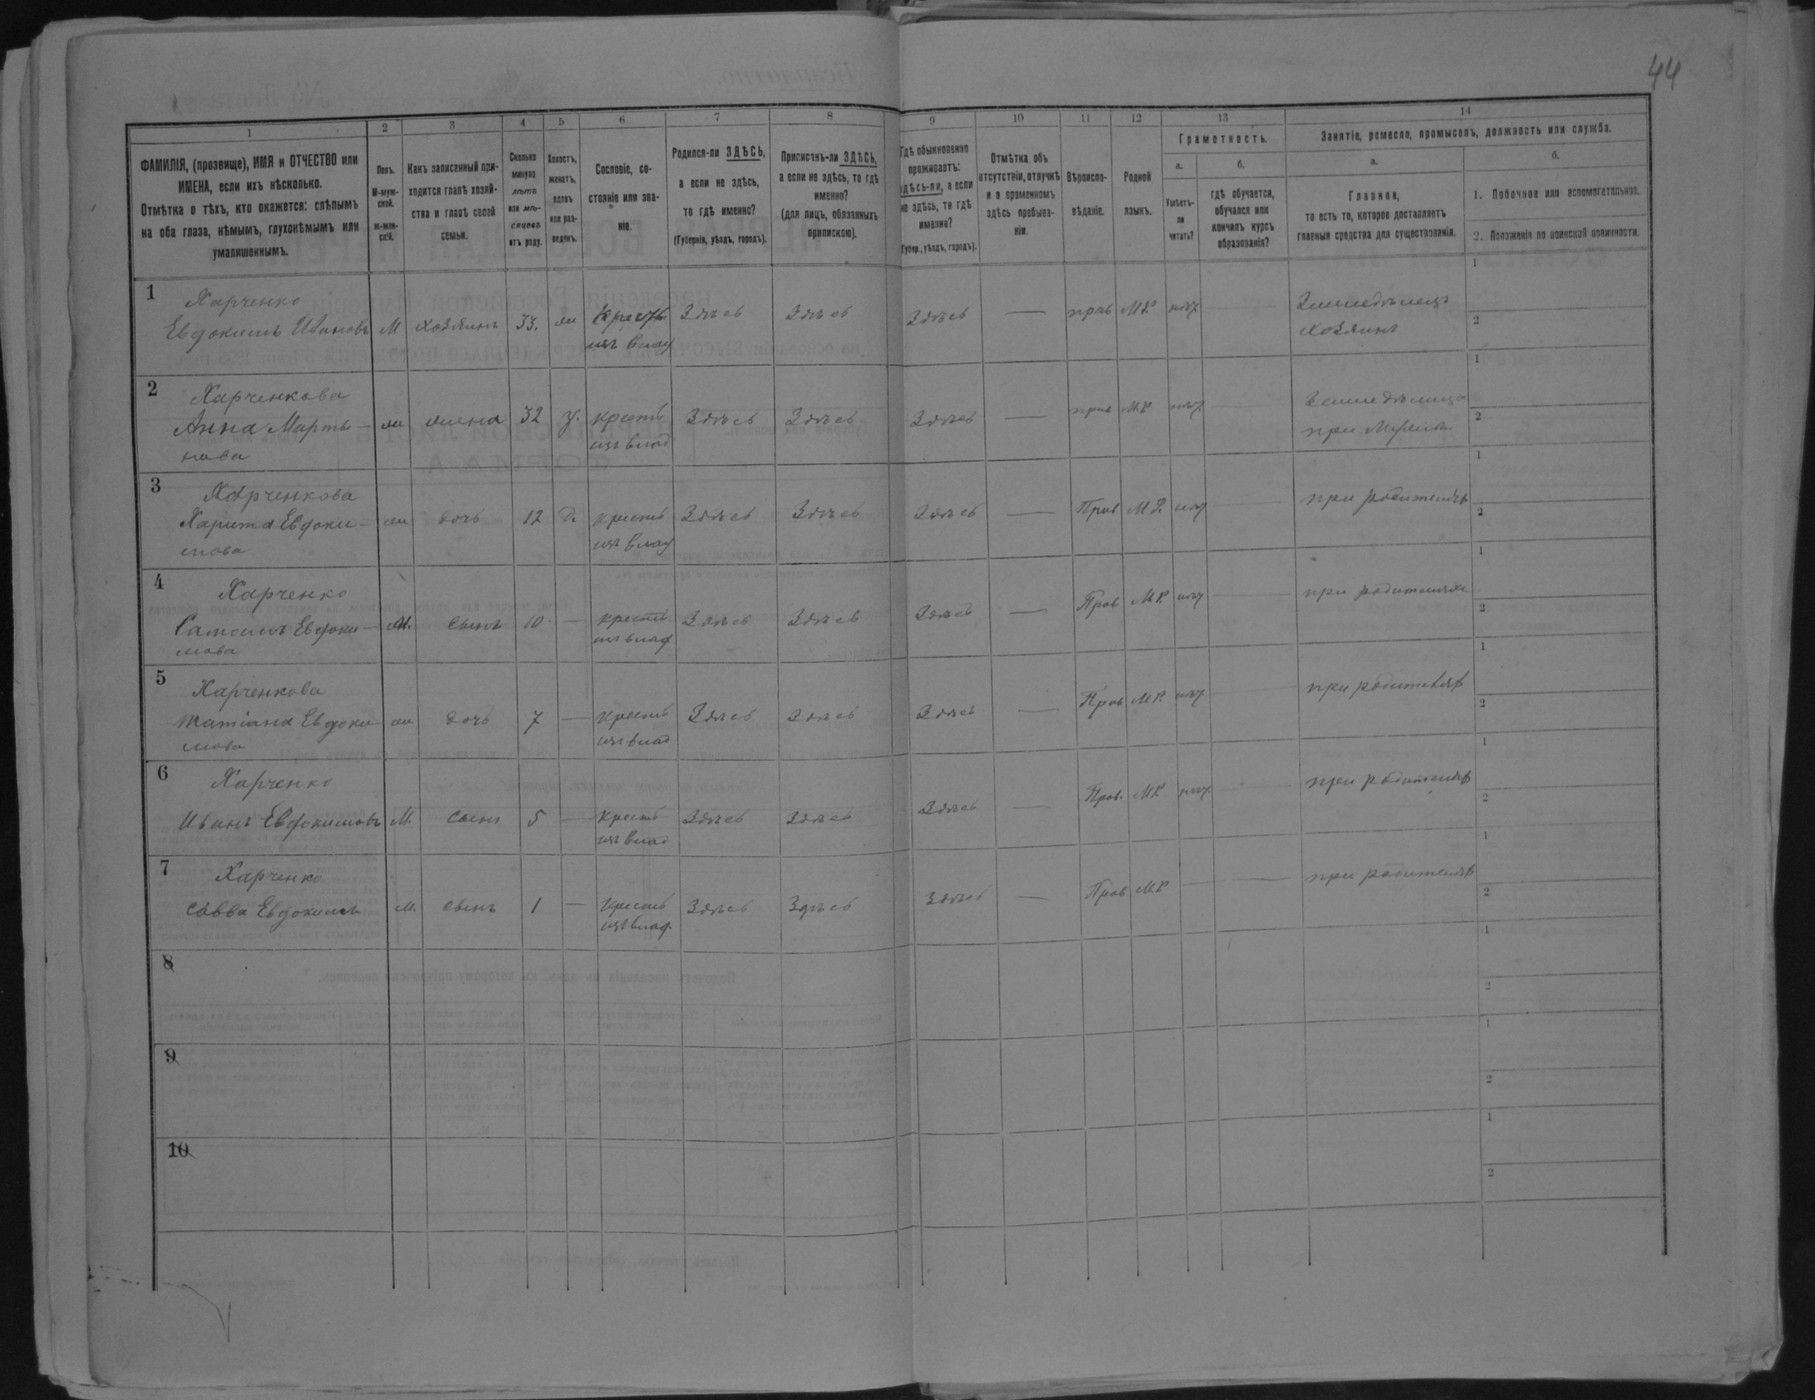 44
1 2 3 4 5 6 7 8 9 10 11 12 13 14
ФАМИЛІЯ, (прозвище), ИМЯ и ОТЧЕСТВО или
ИМЕНА, если ихъ нѣсколько.
Отмѣтка о тѣхъ, кто окажется: слѣпымъ
на оба глаза, нѣмымъ, глухонѣмымъ или
умалишеннымъ.
Полъ.
М-муж-
ской.
Ж-жен-
скій.
Какъ записанный при-
ходится главѣ хозяй-
ства и главѣ своей
семьи.
Сколько
минуло
лѣтъ
или мѣ-
сяцевъ
отъ роду.
Холостъ,
женатъ,
вдовъ
или раз-
веденъ.
Сословіе, со-
стояніе или зва-
ніе.
Родился-ли ЗДѢСЬ,
а если не здѣсь,
то гдѣ именно?
(Губернія, уѣздъ, городъ).
Приписанъ-ли ЗДѢСЬ,
а если не здѣсь, то гдѣ
именно?
(для лицъ, обязанныхъ
припискою).
Гдѣ обыкновенно
проживаетъ:
здѣсь-ли, а если
не здѣсь, то гдѣ
именно?
(Губер., уѣздъ, городъ).
Отмѣтка объ
отсутствіи, отлучкѣ
и о временномъ
здѣсь пребыва-
ніи.
Вѣроиспо-
вѣданіе.
Родной
языкъ.
Грамотность.
а. б.
Умѣетъ-
ли
читать?
гдѣ обучается,
обучался или
кончилъ курсъ
образованія?
Занятіе, ремесло, промыселъ, должность или служба.
а. б.
Главное,
то есть то, которое доставляетъ
главныя средства для существованія.
1. Побочное или вспомогательное.
2. Положеніе по воинской повинности.
1 Харченко
Евдокимъ Ивановъ М хозяинъ 33. ж Крестья изъ влад Здѣсь Здѣсь Здѣсь — прав М.Р. нѣт — Земледѣлецъ хозяинъ 1 2
2 Харченкова
Анна Марты-нова ж жена 32 з. крестья изъ влад Здѣсь Здѣсь Здѣсь — прав М.Р. нѣт — при мужѣ 1 2
3 Харченкова
Харита Евдоки-мова ж дочь 12 д. крестья изъ влад Здѣсь Здѣсь Здѣсь — Прав М.Р. нѣт — при родителях 1 2
4 Харченко
Самоилъ Евдоки-мова М. сынъ 10 — крестья изъ влад Здѣсь Здѣсь Здѣсь — Прав М.Р. нѣт — при родителях 1 2
5 Харченкова
Татіана Евдокимова ж дочь 7 — крестья изъ влад Здѣсь Здѣсь Здѣсь — Прав М.Р. нѣт — при родителях 1 2
6 Харченко
Иванъ Евдокимовъ М. сынъ 5 — крестья изъ влад Здѣсь Здѣсь Здѣсь — Прав. М.Р. нѣт — при родителях 1 2
7 Харченко
Савва Евдокимъ М. сынъ 1 — крестья изъ влад. Здѣсь Здѣсь Здѣсь — Прав М.Р. — — при родителях 1 2
8 1 2
9 1 2
10 1 2